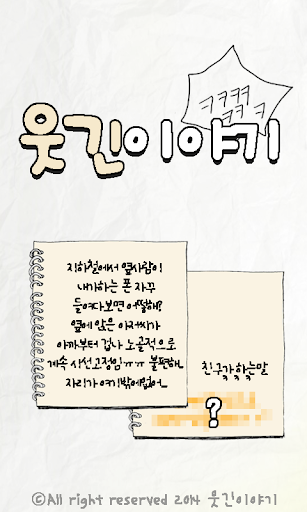 ㅋㅋㅋㅋ
ㅋㅋ ㅋ
웃긴이야기
지하철에서 옆사람이
내가하는 폰 자꾸
들여다보면 어떨해?
옆에 앉은 아저씨가
아까부터 겁나 노골적으로
계속 시선고정임ㅠㅠ 불편해
자리가 여기밖에없어
친구가 하는말
?
©All right reserved 2014 웃긴이야기